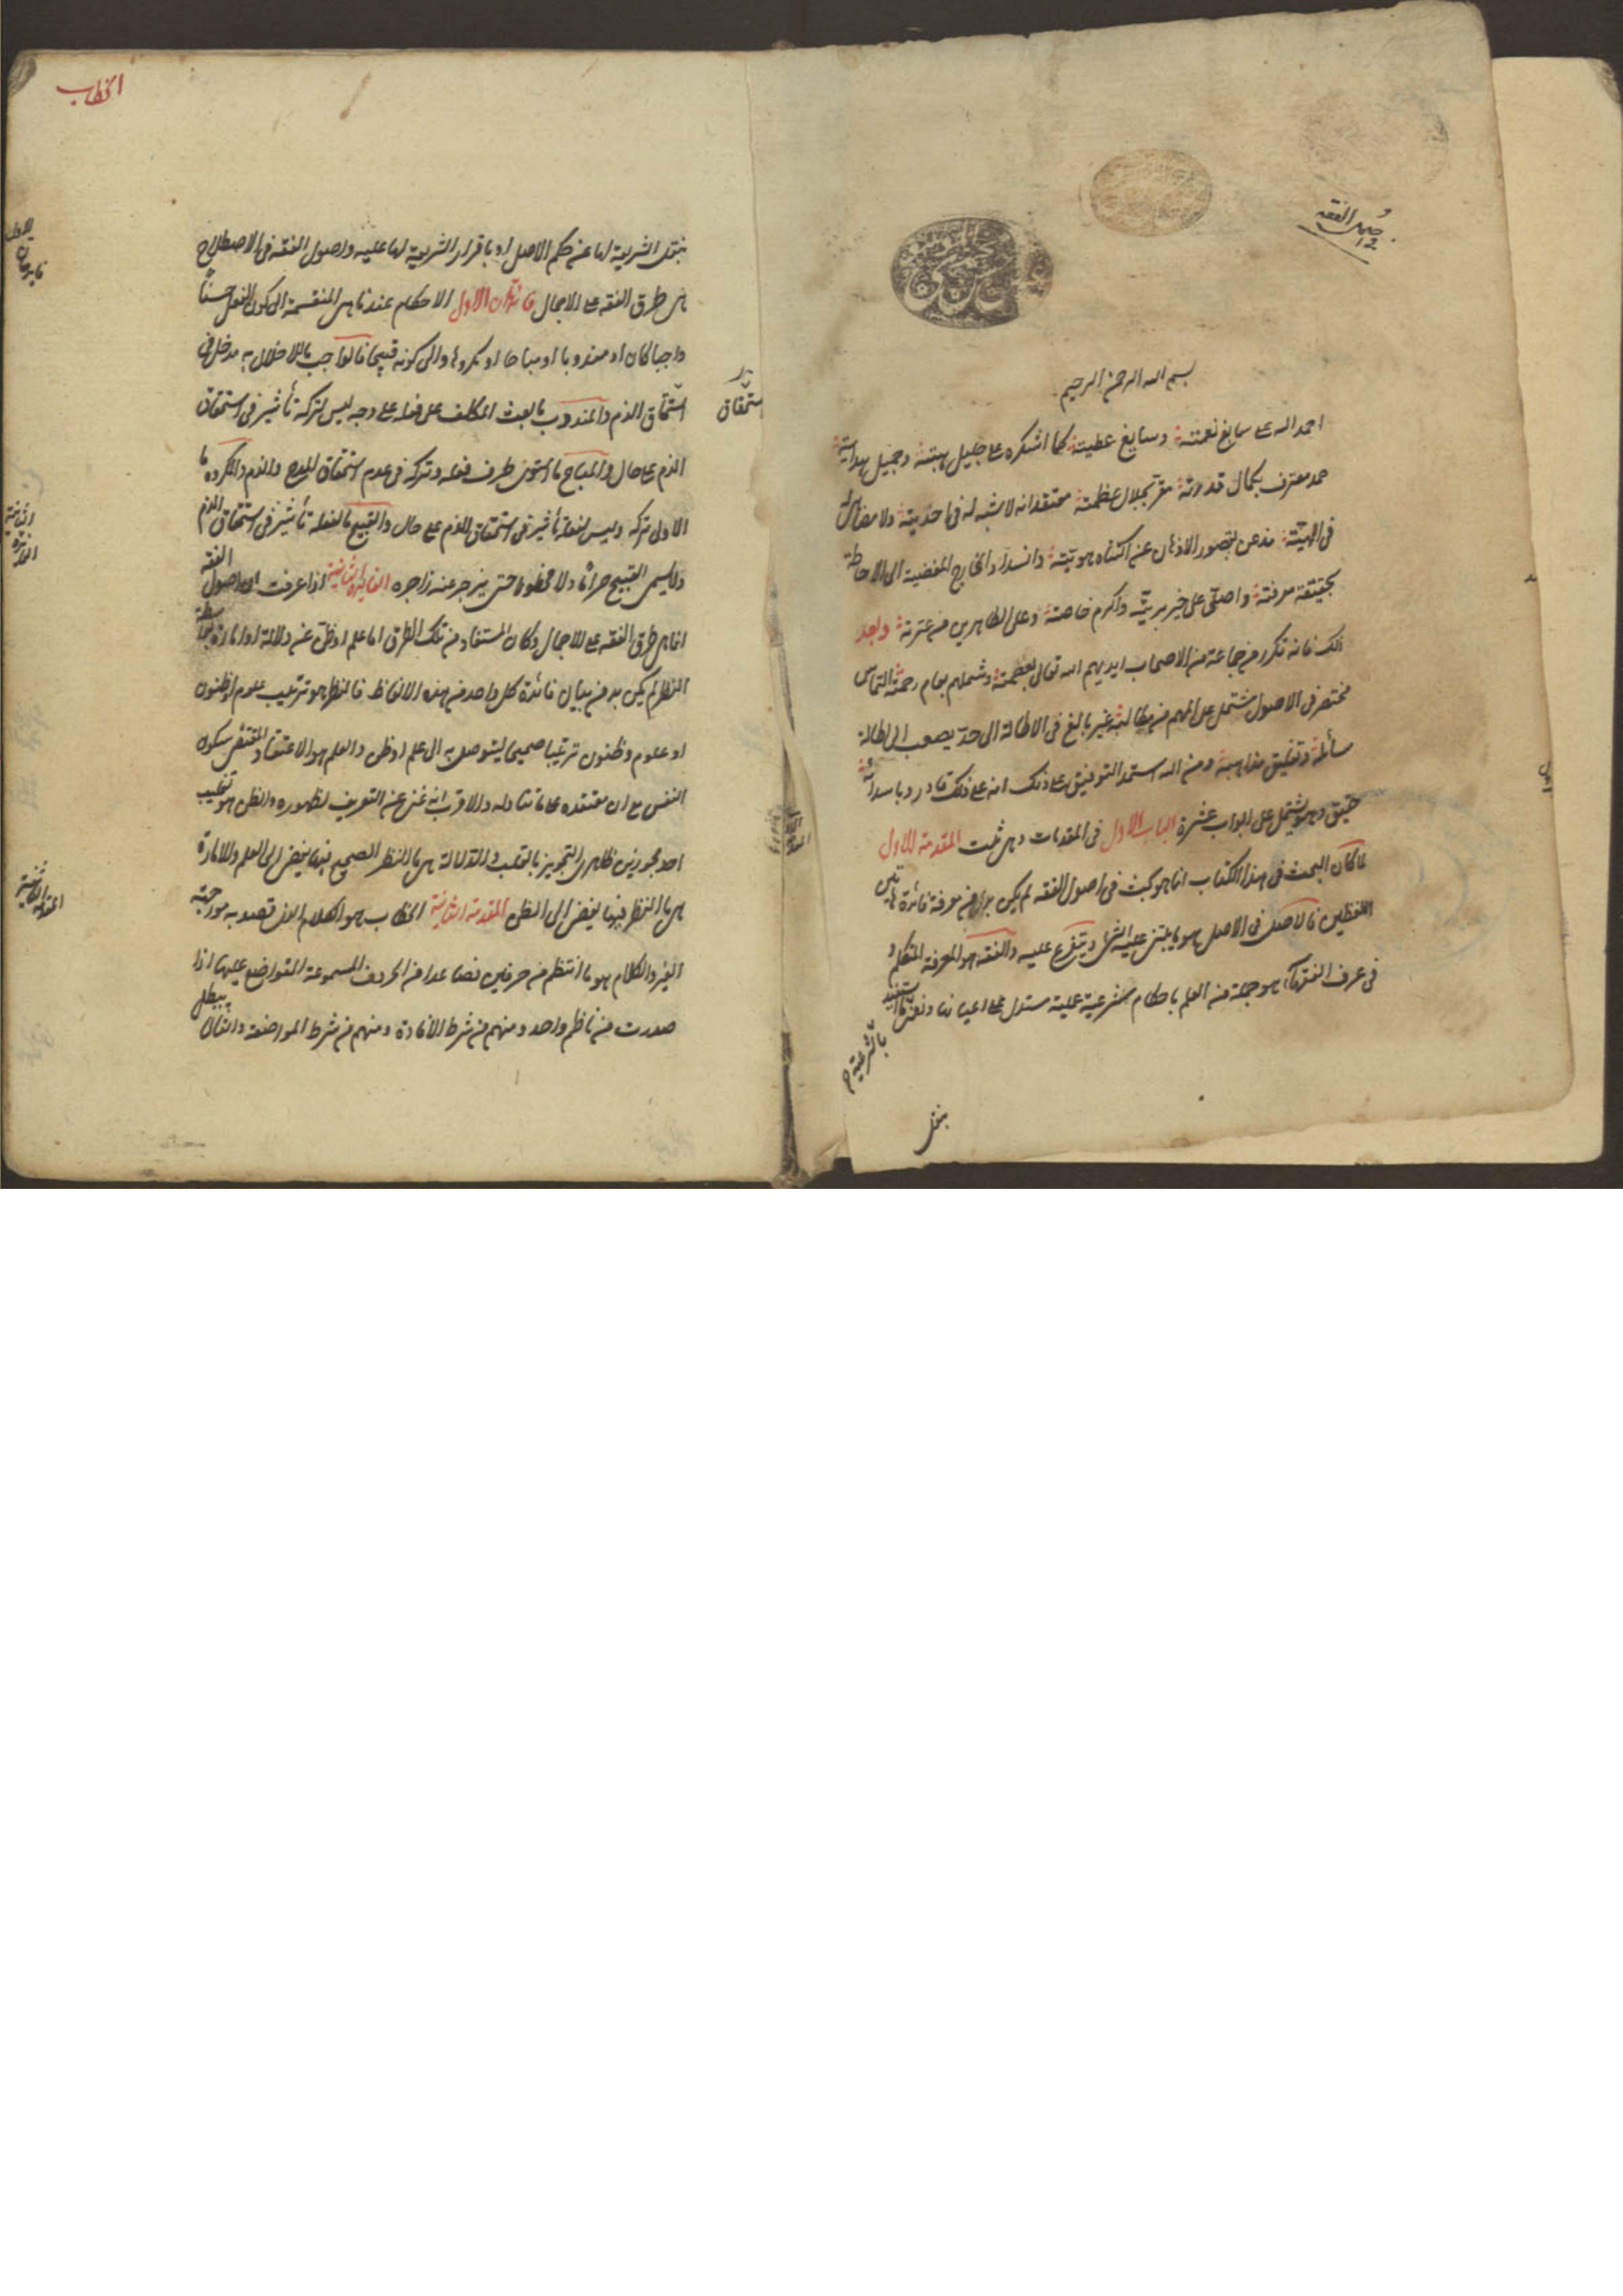 اصول الفقه
بسم الله الرحمن الرحيم
احمد الله على سابغ نعمته وسايغ عطيته كما اشكره على جليل هبته وجميل هدايته
حمد معترف بكمال قدرته مقر بجلال عظمته معتقد انه لا شبه له فى احديته ولا مضاهى
فى الهيته مذعن بقصور الاذهان عن اكتناه هويته وانسداد المفضية الى الاحاطة
بحقيقة معرفته واصلى على خير بريته واكرم خاصته وعلى الطاهرين من عترته وبعد
ذلك فانه تكرر من جماعة من الاصحاب ايديهم الله تعالى بعصمته وشملهم بعام رحمته التماس
مختصر فى الاصول مشتمل على المهم من مطالبه غير بالغ فى الاطالة الى حد يصعب
وتعليق مذاهبه ومن الله استمد التوفيق على ذلك انه على ذلك قادر
حقيق وهو يشتمل على ابواب عشرة الباب الاول فى المقدمات وهى ثلث المقدمة الاولى
لما كان البحث فى هذا الكتاب انما هو بحث فى اصول الفقه لم يكن بد من معرفة فائدة هاتين
اللفظتين فالاصل فى الاصل هو ما يبتنى عليه الشئ ويتفرع عليه والفقه هو المعرفة
فى عرف الفقهاء هو جملة من العلم باحكام شرعية عملية مستدل على اعيانها ونعنى
بالشرعية
بنقل
الخطاب
بنقل الشريعة لها عن حكم الاصل او باقرار الشريعة لها عليه واصول الفقه فى الاصطلاح
هى طرق الفقه على الاجمال فائدتان الاولى الاحكام عندنا هى المنقسمة الى كون الفعل حسنا
واجبا كان او مندوبا او مباحا او مكروها والى كونه قبيحا فالواجب ما للاخلال به مدخل فى
استحقاق الذم والمندوب ما بعث المكلف على فعله على وجه ليس لتركه تأثير فى استحقاق
استحقاق
الذم على حال والمباح ما استوى طرف فعله وتركه فى عدم استحقاق المدح والذم والمكروه ما
الاولى تركه وليس لفعله تأثير فى استحقاق الذم على حال والقبيح ما لفعله تأثير فى استحقاق الذم
ولا يسمى القبيح حراما ولا محظورا حتى يزجر عنه زاجره الفائدة الثانية اذا عرفت ان اصول الفقه
انما هى طرق الفقه على الاجمال وكان المستفاد من تلك الطرق اما علم او ظن عن دلالة او امارة بواسطة
النظر لم يكن بد من بيان فائدة كل واحد من هذه الالفاظ فالنظر هو ترتيب علوم او ظنون
او علوم وظنون ترتيبا صحيحا ليتوصل به الى علم او ظن والعلم هو الاعتقاد المقتضى سكون
النفس الى ان معتقده على ما تناوله والاقرب انه غنى عن التعريف لظهوره والظن هو تغليب
احد مجوزين ظاهرى التجويز بالقلب والدلالة هى ما النظر الصحيح فيها يفضى الى العلم والامارة
هى ما النظر فيها يفضى الى الظن المقدمة الثانية الخطاب هو الكلام الذى قصد به مواجهة
الغير والكلام هو ما انتظم من حرفين فصاعدا من الحروف المسموعة المتواضع عليها اذا
صدرت من ناظم واحد ومنهم من شرط الافادة ومنهم من شرط المواضعة والثانى يبطل
المقدمة الثانية